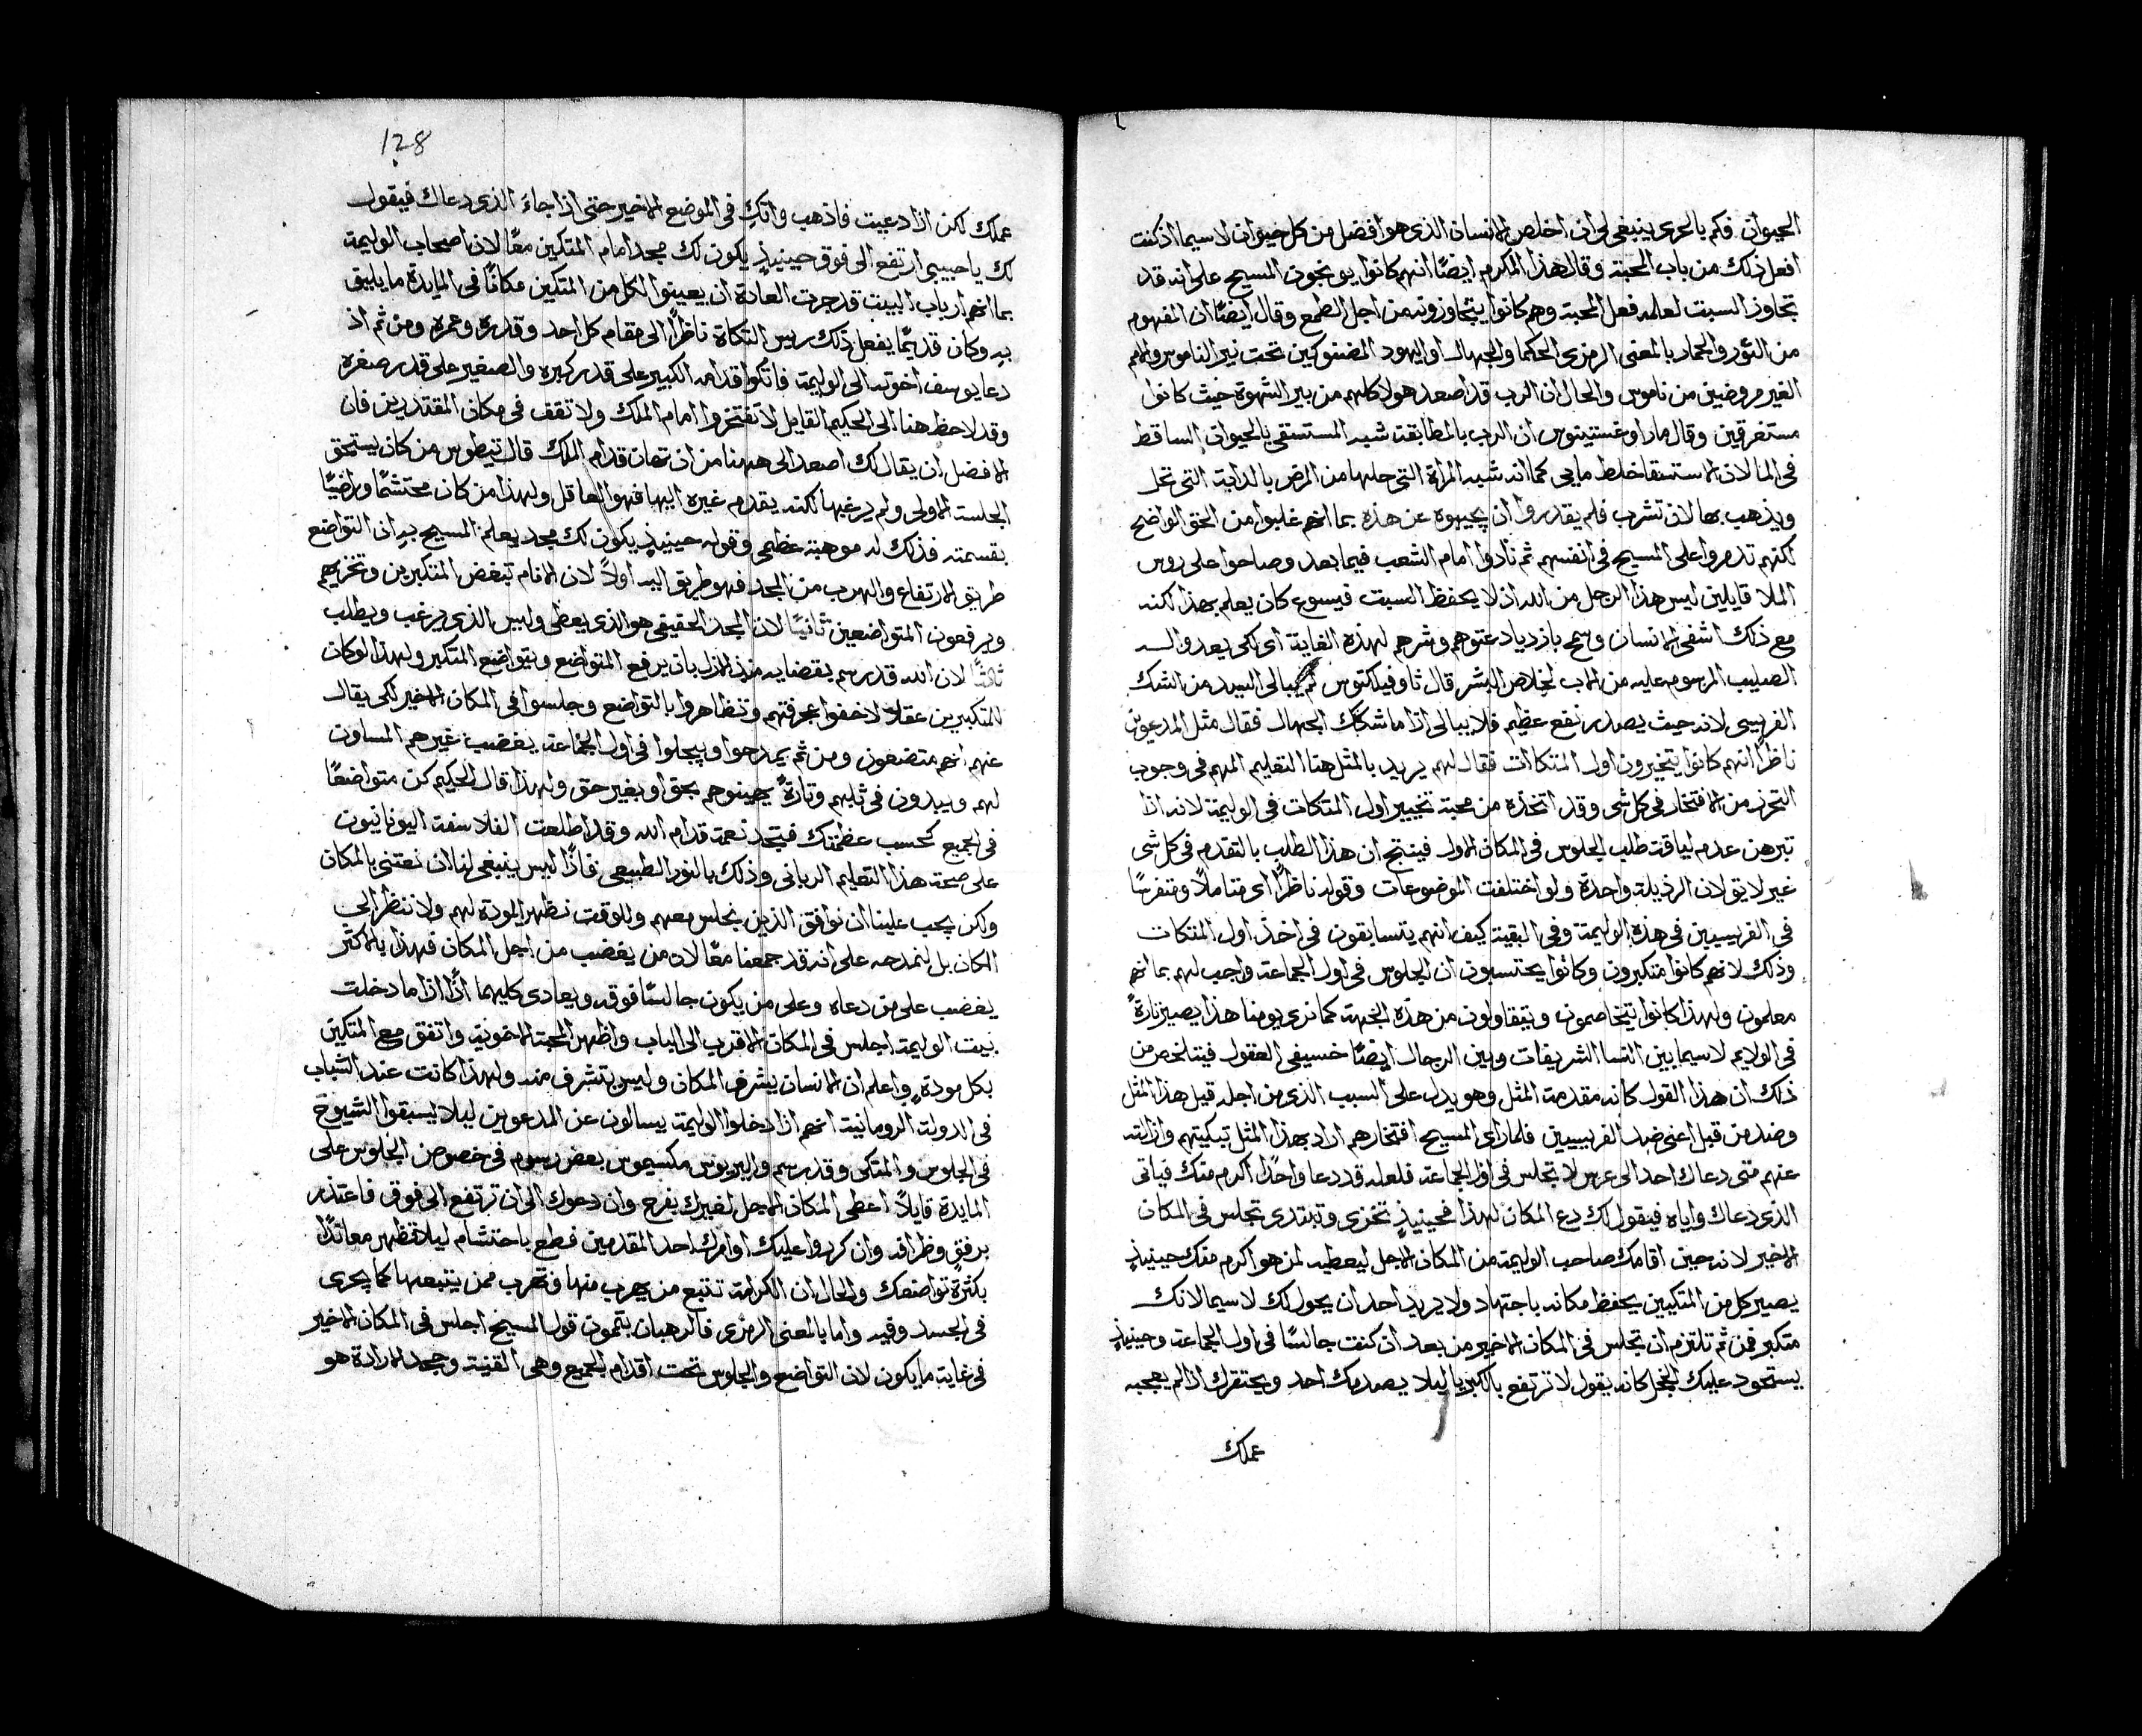 الحيوان فكم بالحرى ينبغى لى ان اخلص الانسان الذى هو افضل من كل حيوان لاسيما اذ كنت
افعل ذلك من باب المحبة وقال هذا المكرم ايضًا انهم كانوا يوبخون المسيح على انه قد
تجاوز السبت لعله فعل المحبة وهم كانوا يتجاوزونه من اجل الطمع وقال ايضًا ان المفهوم
من الثور والحمار بالمعنى الرمزى الحكما والجهال او اليهود المضنوكين تحت نير الناموس والامم
الغير مروضين من ناموس والحال ان الرب قد اصعد هولا كلهم من بير الشهوة حيث كانوا
مستغرقين وقال مار اوغستينوس ان الرب بالمطابقة شبه المستسقى بالحيوان الساقط
فى الما لان الاستسقا خلط مايى كما انه شبه المراة التى حلها من المرض بالدابة التى تحل
ويذهب بها لان تشرب فلم يقدروا ان يجيبوه عن هذه بما انهم غلبوا من الحق الواضح
لكنهم تدمروا على المسيح فى انفسهم ثم نادوا امام الشعب فيما بعد وصاحوا على روس
الملا قايلين ليس هذا الرجل من الله اذ لا يحفظ السبت فيسوع كان يعلم بهذا لكنه
مع ذلك اشفى الانسان وسمح بازدياد عتوهم وشرهم لهذه الغاية اى لكى يعدوا له
الصليب المرسوم عليه من الاب لخلاص البشر قال ثاوفيلكتوس لم يبالى السيد من الشك
الفريسى لانه حيث يصدر نفع عظيم فلا يبالى اذا ما شكك الجهال فقال مثل المدعوين
ناظرًا انهم كانوا يتخيرون اول المتكاات فقال لهم يريد بالمثل هنا التعليم المهم فى وجوب
التحرز من الافتخار فى كل شى وقد اتخذه من محبة تخيير اول المتكات فى الوليمة لانه اذا
تبرهن عدم لياقة طلب الجلوس فى المكان الاول فينتج ان هذا الطلب بالتقدم فى كل شى
غير لايق لان الرذيلة واحدة ولو اختلفت الموضوعات وقوله ناظرًا اى متاملًا ومتفرسًا
فى الفريسيين فى هذه الوليمة وفى البقية كيف انهم يتسابقون فى اخذ اول المتكات
وذلك لانهم كانوا متكبرون وكانوا يحتسبون ان الجلوس فى اول الجماعة واجب لهم بما انهم
معلمون ولهذا كانوا يتخاصمون ويتقاولون من هذه الجهة كما نرى يومنا هذا يصير تارةً
فى الولايم لاسيما بين النسا الشريفات وبين الرجال ايضًا خسيفى العقول فيتلخص من
ذلك ان هذا القول كانه مقدمة المثل وهو يدل على السبب الذى من اجله قيل هذا المثل
وضد من قيل اعنى ضد الفريسيين فلما راى المسيح افتخارهم اراد بهذا المثل تبكيتهم وازالته
عنهم متى دعاك احد الى عرس لا تجلس فى اول الجماعة فلعله قد دعا واحدًا اكرم منك فياتى
الذى دعاك واياه فيقول لك دع المكان لهذا فحينيذٍ تخزى وتبتدى تجلس فى المكان
الاخير لانه حين اقامك صاحب الوليمة من المكان الاجل ليعطيه لمن هو اكرم منك حينيذٍ
يصير كل من المتكيين يحفظ مكانه باجتهاد ولا يريد احد ان يحول لك لاسيما لانك
متكبر فمن ثم تلتزم ان تجلس فى المكان الاخير من بعد ان كنت جالسًا فى اول الجماعة وحينيذٍ
يستحود عليك الخجل كانه يقول لا ترتفع بالكبريا ليلا يصدمك احد ويحتقرك اذا لم يعجبه
عملك
128
عملك لكن اذا دعيت فاذهب واتكِ فى الموضع الاخير حتى اذا جاءَ الذى دعاك فيقول
لك يا حبيبى ارتفع الى فوق حينيذٍ يكون لك مجد امام المتكين معًا لان اصحاب الوليمة
بما انهم ارباب البيت قد جرت العادة ان يعينوا لكل من المتكين مكانًا فى المايدة ما يليق
بهِ وكان قديمًا يفعل ذلك ريس التكاة ناظرًا الى مقام كل احد وقدره وعمره ومن ثم اذ
دعا يوسف اخوته الى الوليمة فاتكوا قدامه الكبير على قدر كبره والصغير على قدر صغره
وقد لاحظ هنا الى الحكيم القايل لا تفتخروا امام الملك ولا تقف فى مكان المقتدرين فان
الافضل ان يقال لك اصعد الى ههنا من ان تهان قدام الملك قال تيطوس من كان يستحق
الجلسة الاولى ولم يرغبها لكنه يقدم غيره اليها فهو العاقل ولهذا من كان محتشمًا وراضيًا
بقسمته فذلك له موهبة عظمى وقوله حينيذٍ يكون لك مجد يعلم المسيح به ان التواضع
طريق الارتفاع والهرب من المجد فهو طريق اليه اولًا لان الانام تبغض المتكبرين وتخزيهم
ويرفعون المتواضعين ثانيًا لان المجد الحقيقى هو الذى يعطى وليس الذى يرغب ويطلب
ثالثًا لان الله قد رسم بقضايه منذ الازل بان يرفع المتواضع ويتواضع المتكبر ولهذا لو كان
للمتكبرين عقلًا لاخفوا عجرفتهم وتظاهروا بالتواضع وجلسوا فى المكان الاخير لكى يقال
عنهم انهم متضعون ومن ثم يمدحوا ويبجلوا فى اول الجماعة يغضب غيرهم المساوت
لهم ويبدون فى ثلبهم وتارةً يهينوهم بحق او بغير حق ولهذا قال الحكيم كن متواضعًا
فى الجميع كحسب عظمتك فتجد نعمة قدام الله وقد اطلعت الفلاسفة اليونانيون
على صحة هذا التعليم الربانى وذلك بالنور الطبيعى فاذًا ليس ينبغى لنا ان نعتنى بالمكان
ولكن يجب علينا ان نوافق الذين نجلس معهم وللوقت نظهر المودة لهم ولا ننظر الى
المكان بل لنمدحه على انه قد جمعنا معًا لان من يغضب من اجل المكان فهذا بالاكثر
يغضب على من دعاه وعلى من يكون جالسًا فوقه ويعادى كليهما اذًا اذا ما دخلت
بيت الوليمة اجلس فى المكان الاقرب الى الباب واظهر المحبة الاخوية واتفق مع المتكين
بكل مودةٍ واعلم ان الانسان يشرف المكان وليس يتشرف منه ولهذا كانت عند الشباب
فى الدولة الرومانية انهم اذا دخلوا الوليمة يسالون عن المدعوين ليلا يسبقوا الشيوخ
فى الجلوس والمتكى وقد رسم واليريوس مكسيموس بعض رسوم فى خصوص الجلوس على
المايدة قايلًا اعطى المكان الاجل لغيرك بفرح وان دعوك الى ان ترتفع الى فوق فاعتذر
برفقٍ وظرافه وان كرروا عليك او امرك احد المقدمين فطع باحتشام ليلا تظهر معاندًا
بكثرة تواضعك والحال ان الكرامة تتبع من يهرب منها وتهرب ممن يتبعها كما يجرى
فى الجسد وفيه واما بالمعنى الرمزى فالرهبان يتمون قول المسيح اجلس فى المكان الاخير
فى غاية ما يكون لان التواضع والجلوس تحت اقدام الجميع وهى القنية وجحد الارادة هو